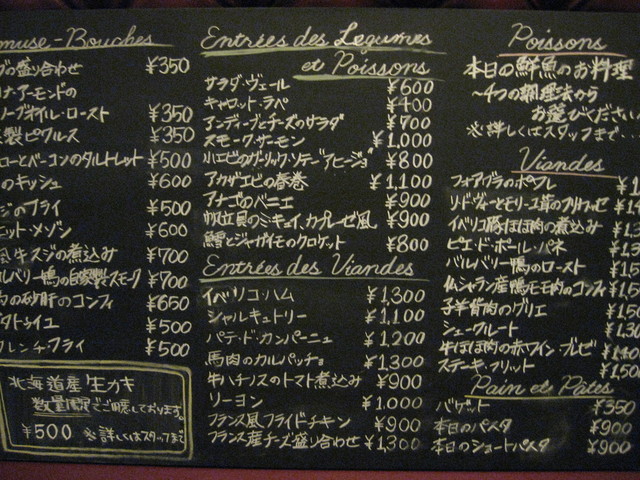 muse-Bouches
の盛り合わせ ¥350
ナアーモンドの
ーブオイル・ロースト ¥350
製ピクルス ¥350
ーとベーコンのタルトレット ¥500
のキッシュ ¥600
のフライ ¥500
ット・メゾン ¥600
牛スジの煮込み ¥700
ルバリー鴨の自家製スモーク ¥700
の砂肝のコンフィ ¥650
タトゥイユ ¥500
フレンチフライ ¥500
北海道産生カキ
数量限定でご用意しております。
¥500 ※詳しくはスタッフまで
Entrées des Légumes
et Poissons
サラダ・ヴェール ¥600
キャロット・ラペ ¥400
アンディーブとチーズのサラダ ¥700
スモーク・サーモン ¥1,000
小エビのガーリック・ソテー"アヒージョ" ¥800
アカザエビの春巻 ¥1,100
アナゴのベニエ ¥900
帆立貝のミキュイ、カプレーゼ風 ¥900
鱈とジャガイモのクロケット ¥800
Entrées des Viandes
イベリコ・ハム ¥1,300
シャルキュトリー ¥1,100
パテ・ド・カンパーニュ ¥1,200
馬肉のカルパッチョ ¥1,300
牛ハチノスのトマト煮込み ¥900
リーヨン ¥1,000
フランス風フライドチキン ¥900
フランス産チーズ盛り合わせ ¥1,300
Poissons
本日の鮮魚のお料理
～4つの調理法から
お選びください
※詳しくはスタッフまで
Viandes
フォアグラのポワレ ¥1
リ・ド・ヴォーとモリーユ茸のフリカッセ ¥1
イベリコ豚ほほ肉の煮込み ¥1
ピエ・ド・ポール・パネ ¥1,3
バルバリー鴨のロースト ¥1
シャラン産鴨モモ肉のコンフィ ¥1,5
子羊背肉のグリエ ¥1,5
シュークルート ¥130
牛ほほ肉の赤ワイン・ブレゼ ¥140
ステーキ・フリット ¥150
Pain et Pâtes
バゲット ¥350
本日のパスタ ¥900
本日のショートパスタ ¥900